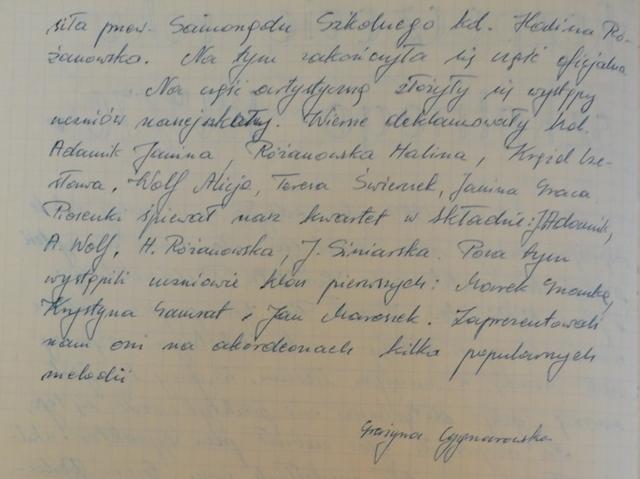 siła przew. Samorządu Szkolnego kol. Halina Ró-
żanowska. Na tym zakończyła się część oficjalna
Na część artystyczną złożyły się występy
uczniów naszej szkoły. Wiersze deklamowały kol.
Adamik Janina, Różanowska Halina, Krężel Cze-
sława, Wolf Alicja, Teresa Świerszek, Janina Graca.
Piosenki śpiewał nasz kwartet w składzie: J. Adamik,
A. Wolf, H. Różanowska, J. Siniarska. Poza tym
wystąpili uczniowie klas pierwszych: Marek
Krystyna Gamrat i Jan Maroszek. Zaprezentowali
nam oni na akordeonach kilka popularnych
melodii
Grażyna